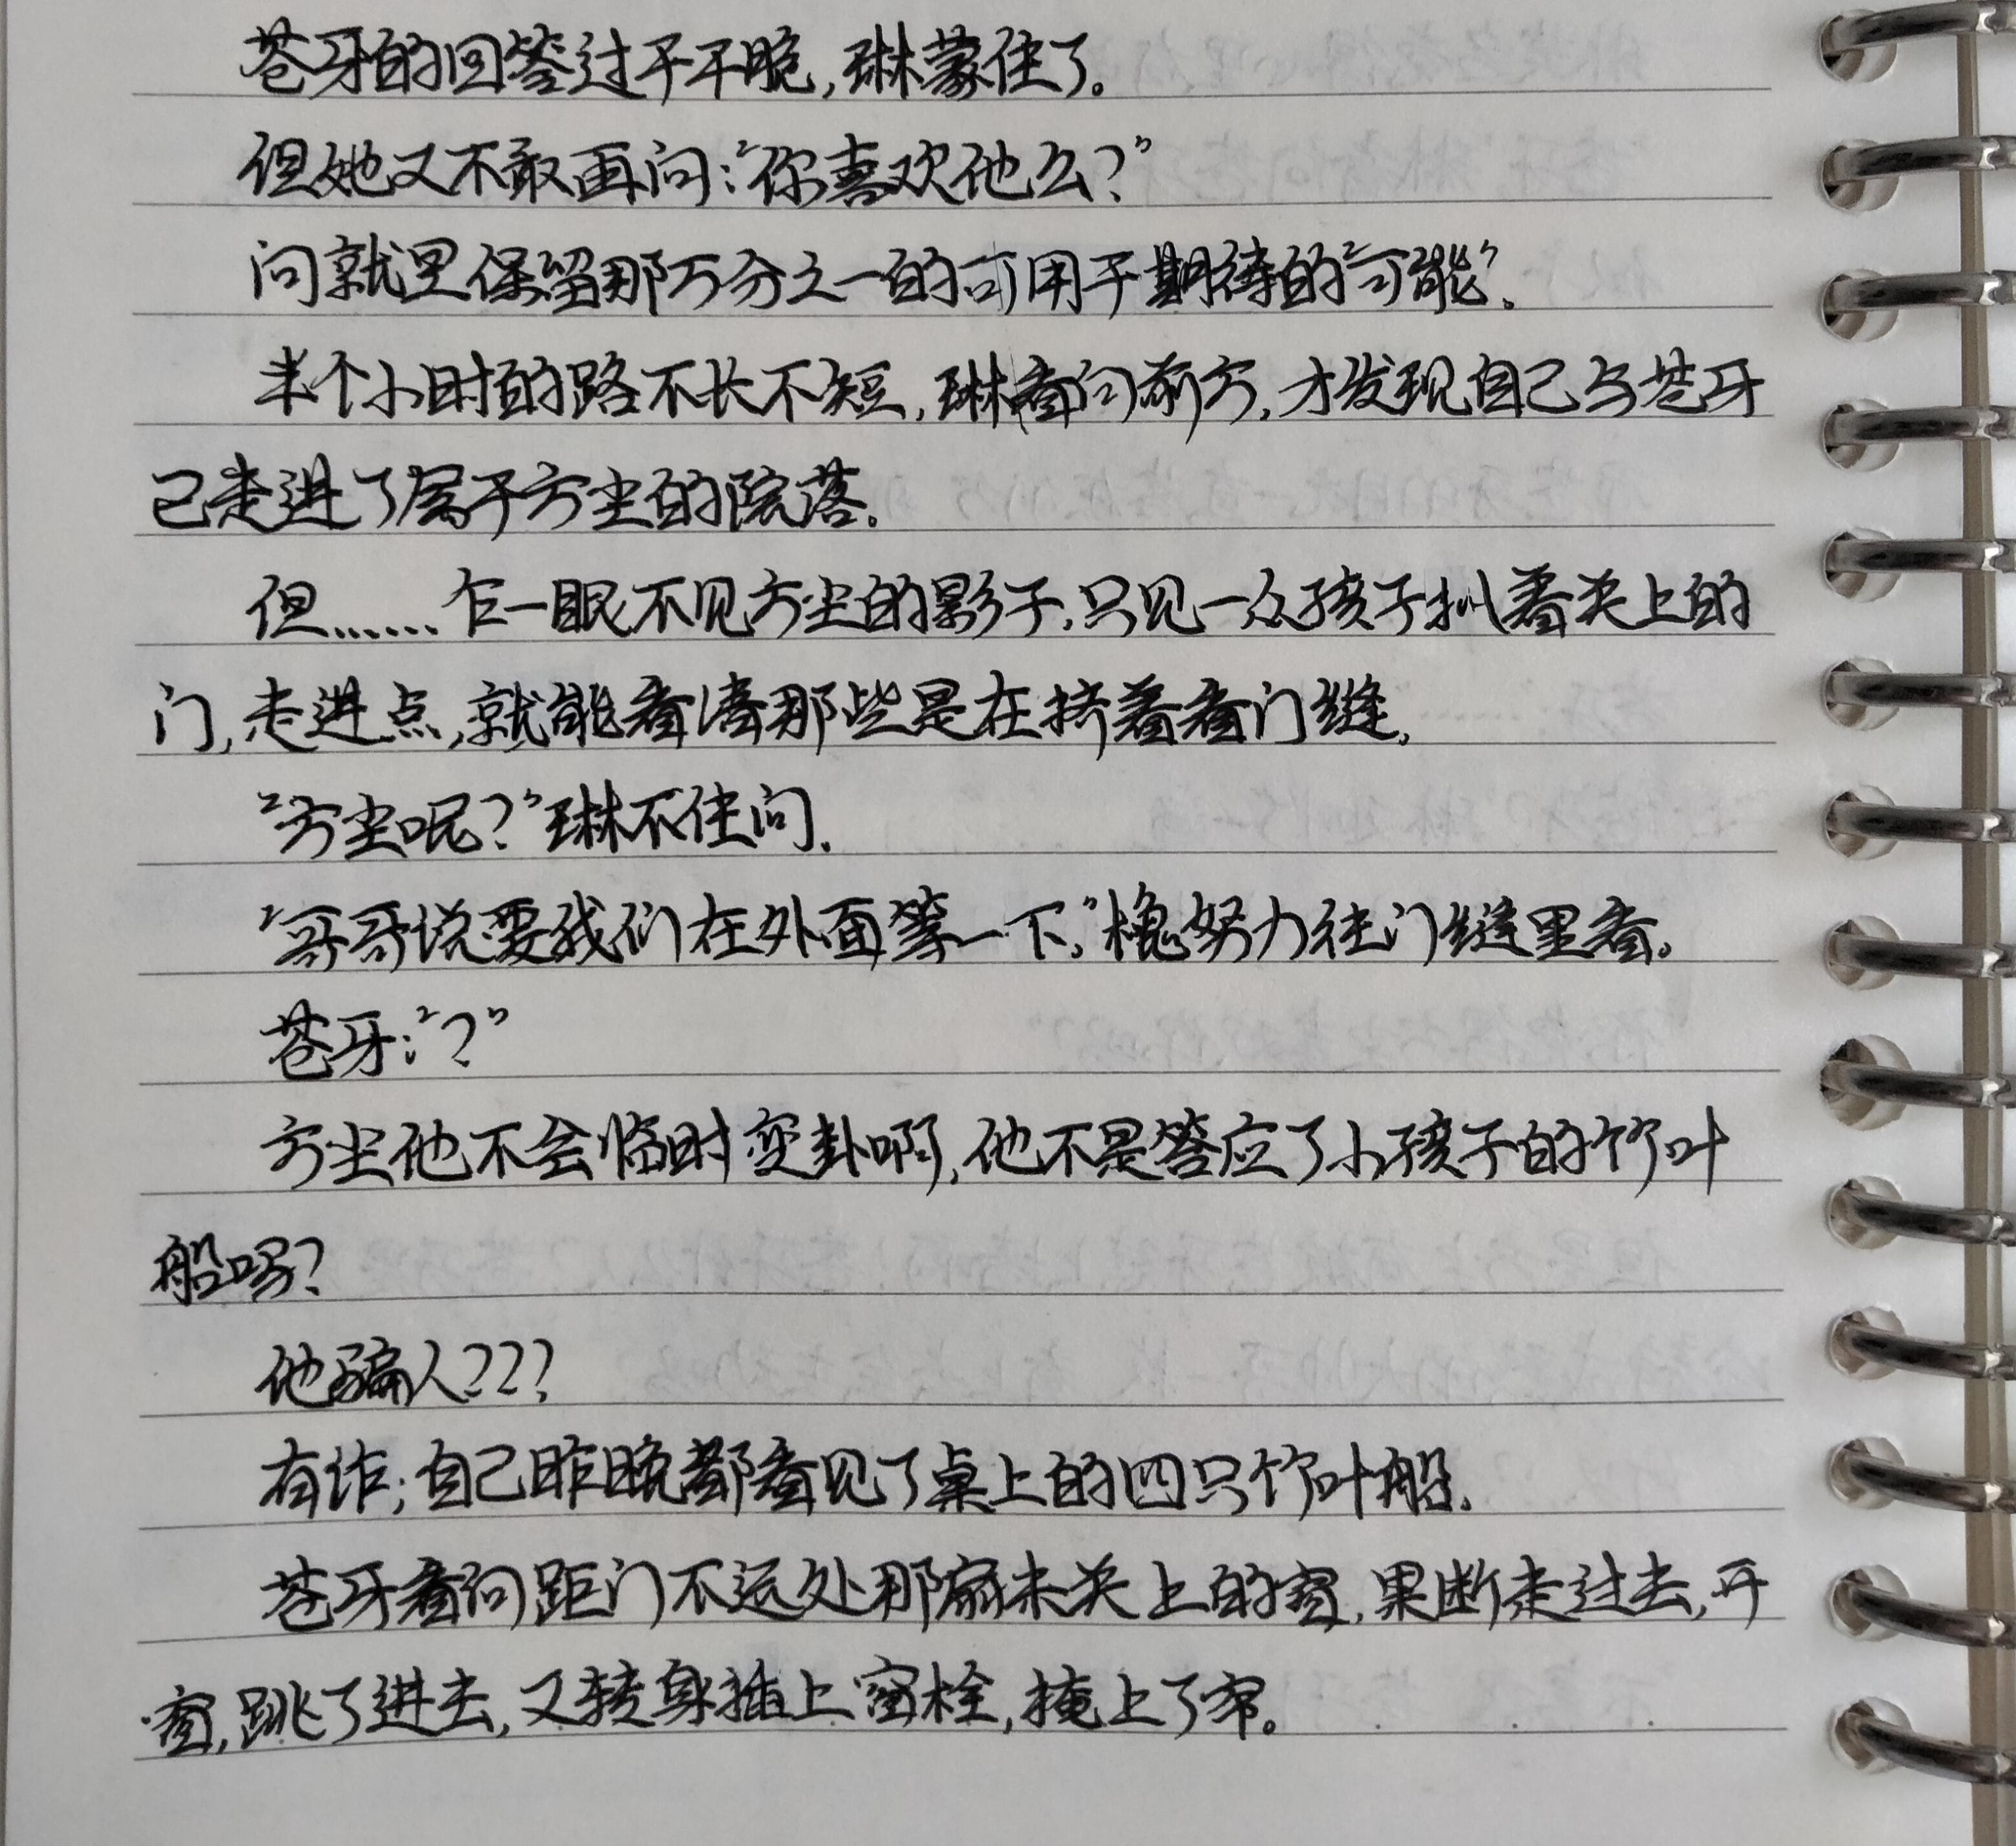 苍牙的回答过于干脆,琳蒙住了。
但她又不敢再问:“你喜欢他么?”
问就里保留那万分之一的可用于期待的“可能”。
半个小时的路不长不短,琳看向前方,才发现自己与苍牙
已走进了属于方尘的院落。
但……乍一眼不见方尘的影子,只见一众孩子扒着关上的
门,走进点,就能看清那些是在挤着看门缝。
“方尘呢?”琳不住问.
“哥哥说要我们在外面等一下,”槐努力往门缝里看。
苍牙:“?”
方尘他不会临时变卦啊,他不是答应了小孩子的竹叶
船吗?
他骗人???
有诈;自己昨晚都看见了桌上的四只竹叶船.
苍牙看向距门不远处那扇未关上的窗,果断走过去,开
窗,跳了进去,又转身插上窗栓,掩上了帘。